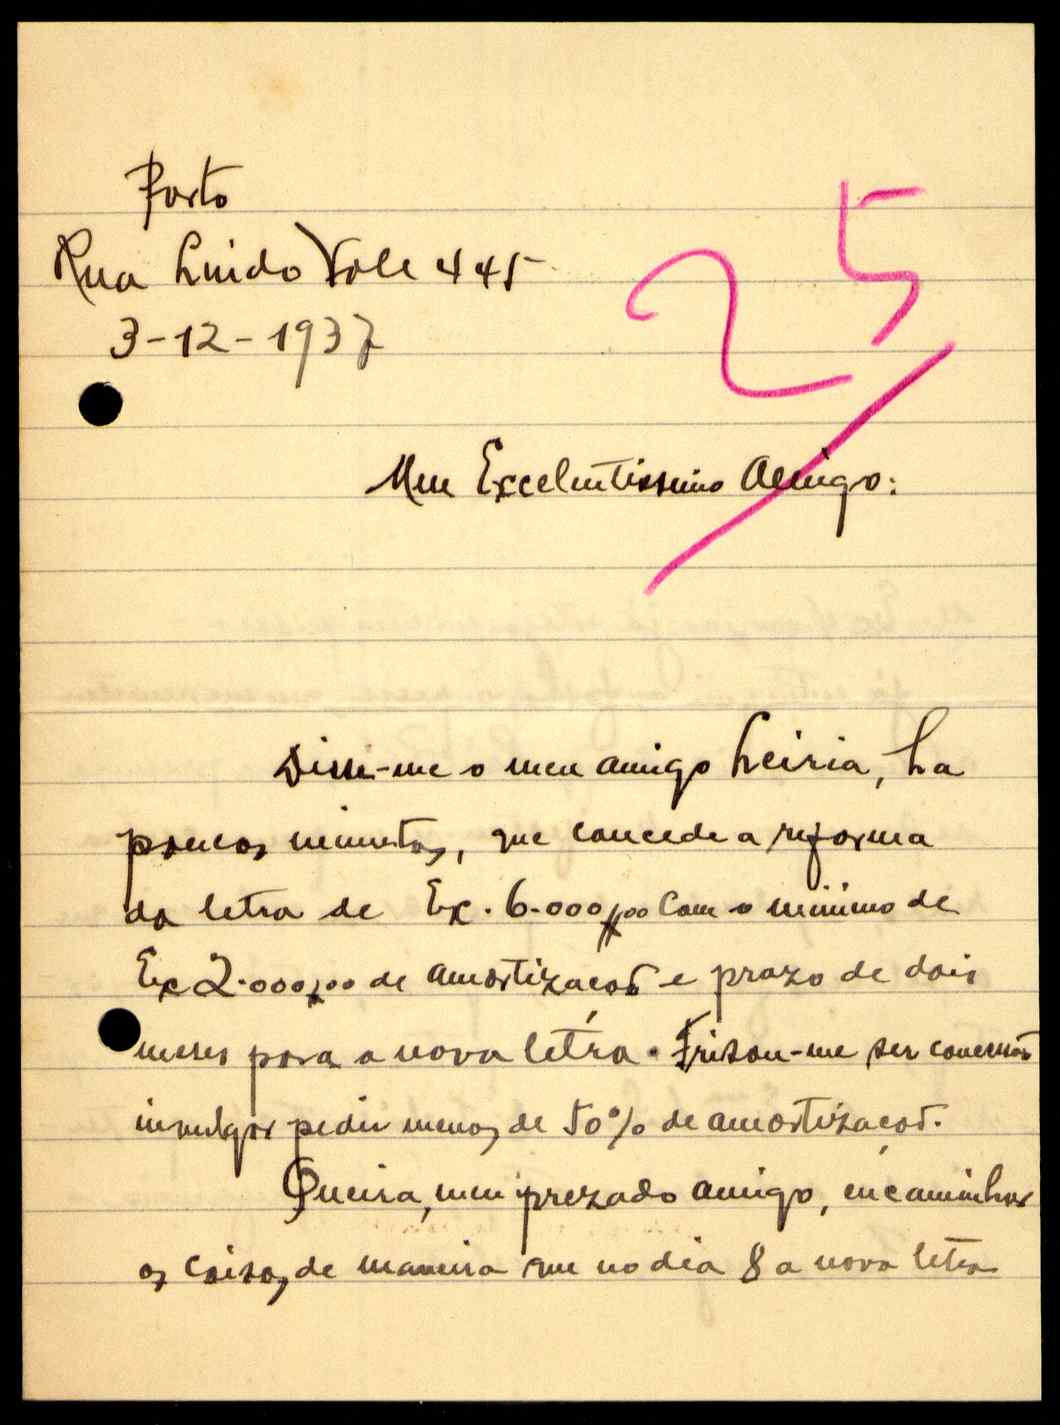 Porto
Rua Guido Vale 445
3-12-1937
25
Meu Excelentissimo Amigo:
Disse-me o meu amigo Leiria, ha
poucos minutos, que concede a reforma
da letra de Ex. 6.000$00 com o minimo de
Ex 2.000$00 de amortização e prazo de dois
meses para a nova letra. Frisou-me ser concessão
invulgar pedir menos de 50% de amortização.
Queira, meu prezado amigo, encaminhar
as coisas de maneira que no dia 8 a nova letra